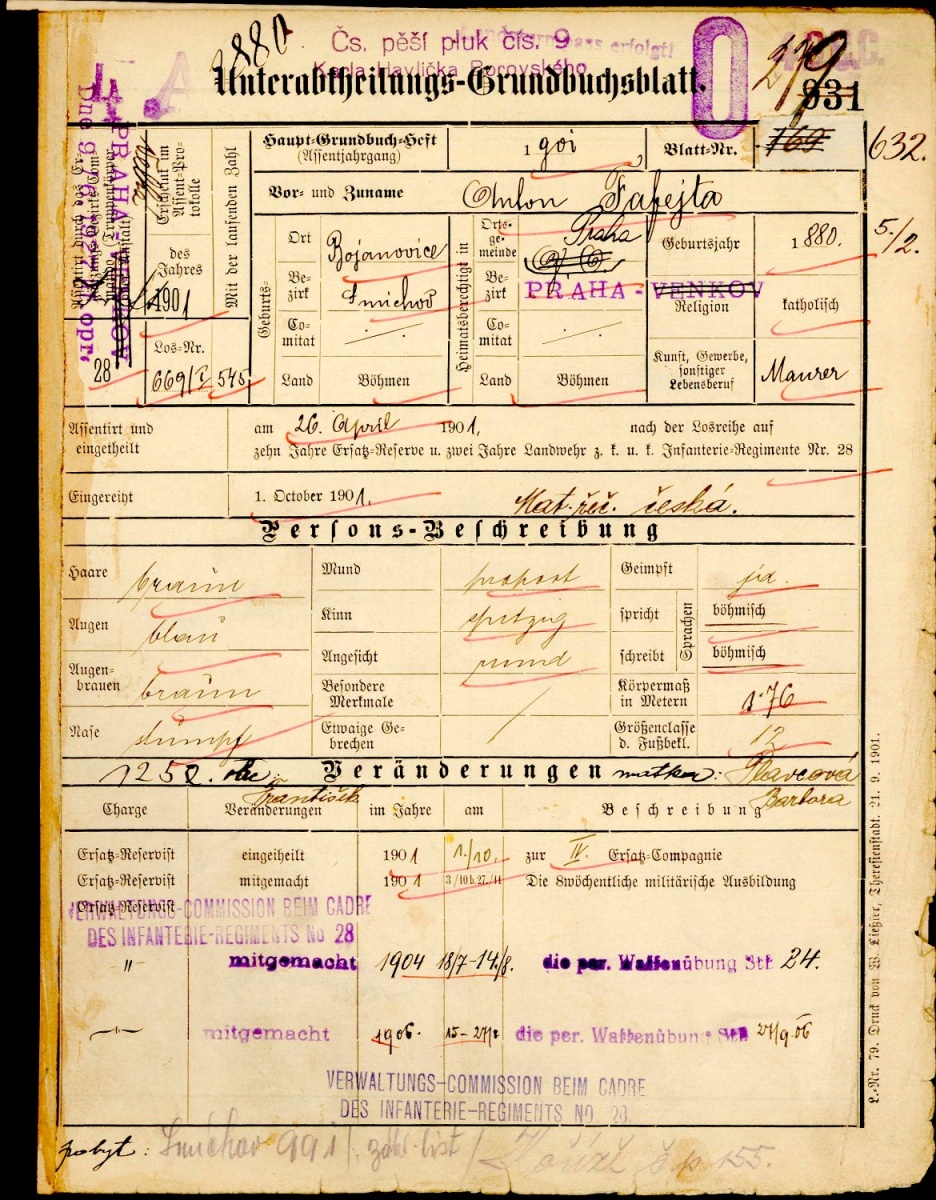 1880
Čs. pěší pluk čís. 9
Karla Havlíčka Borovského
erfolgt!
Unterabtheilungs-Grundbuchsblatt.
279
931
Haupt-Grundbuch-Heft
(Assentjahrgang)
1901
Blatt-Nr.
169
632.
Vor- und Zuname
Anton Fafejta
PRAHA-VENKOV
Erscheint im Assent-Protokolle
des Jahres
1901
Mit der laufenden Zahl
28
Los-Nr.
669/I
545
Geburts-
Ort
Bojanovice
Bezirk
Smichov
Comitat
Land
Böhmen
Heimatsberechtigt in
Ortsgemeinde
Praha
Bezirk
PRAHA-VENKOV
Comitat
Land
Böhmen
Geburtsjahr
1880.
5/2.
Religion
katholisch
Kunst, Gewerbe, sonstiger Lebensberuf
Maurer
Assentirt und eingetheilt
am 26. April 1901, nach der Losreihe auf
zehn Jahre Ersatz-Reserve u. zwei Jahre Landwehr z. k. u. k. Infanterie-Regimente Nr. 28
Eingereiht
1. October 1901.
Mat. řeč. česká.
Persons-Beschreibung
Haare braun
Mund proport
Geimpft ja.
Augen blau
Kinn spitzig
spricht
Sprachen
böhmisch
Augenbrauen braun
Angesicht rund
schreibt
böhmisch
Besondere Merkmale /
Körpermaß in Metern 1·76
Nase stumpf
Etwaige Gebrechen
Größenclasse d. Fußbekl. 12
1252. otec: František
Veränderungen
matka: Barbora
Charge
Veränderungen
im Jahre
am
Beschreibung
Ersatz-Reservist eingetheilt 1901 1./10. zur IV. Ersatz-Compagnie
Ersatz-Reservist mitgemacht 1901 3/10 b. 27./11 Die 8wöchentliche militärische Ausbildung
Ersatz-Reservist
VERWALTUNGS-COMMISSION BEIM CADRE
DES INFANTERIE-REGIMENTS No 28
" mitgemacht 1904 18/7-14/8. die per. Waffenübung Stf 24.
mitgemacht 1906. 15-27/9 die per. Waffenübung 27/9 06
VERWALTUNGS-COMMISSION BEIM CADRE
DES INFANTERIE-REGIMENTS No. 28
pobyt: Smíchov 991/ zákl. list /
čp 155.
L.-Nr. 79. Druck von W. Ließler, Theresienstadt. 21. 9. 1901.